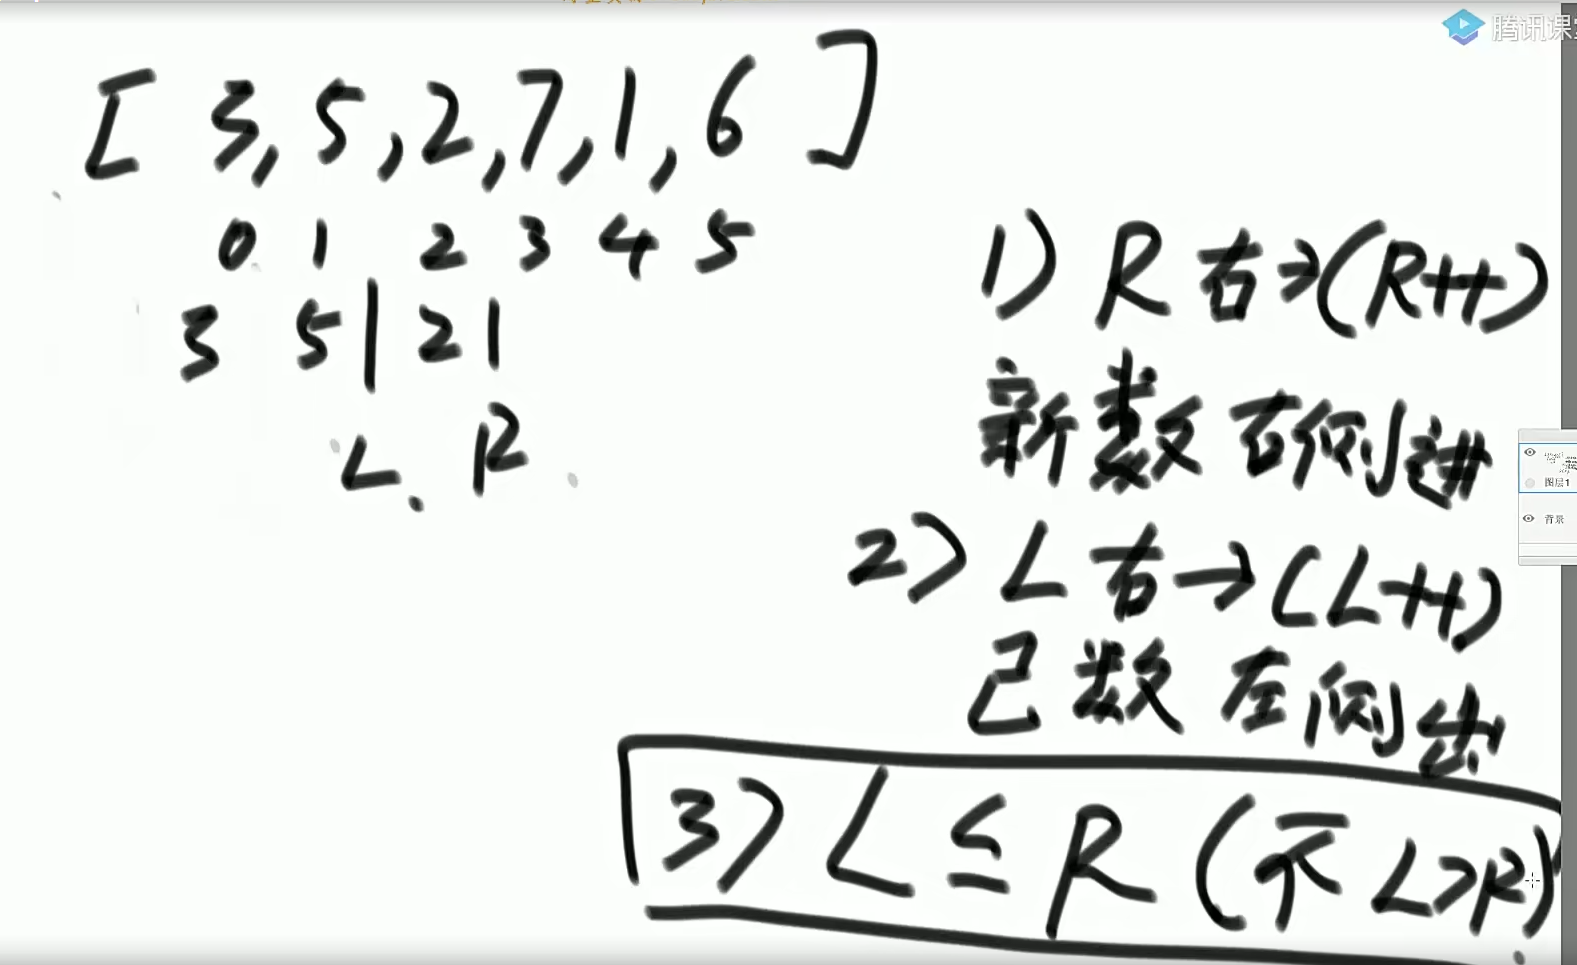 腾讯课堂
[ 3, 5, 2, 7, 1, 6 ]
0 1 2 3 4 5
3 5 | 2 |
L R
1) R 右→(R++)
新数右侧进
2) L 右→(L++)
己数左侧出
3) L ≤ R (不 L>R)
图层1
背景